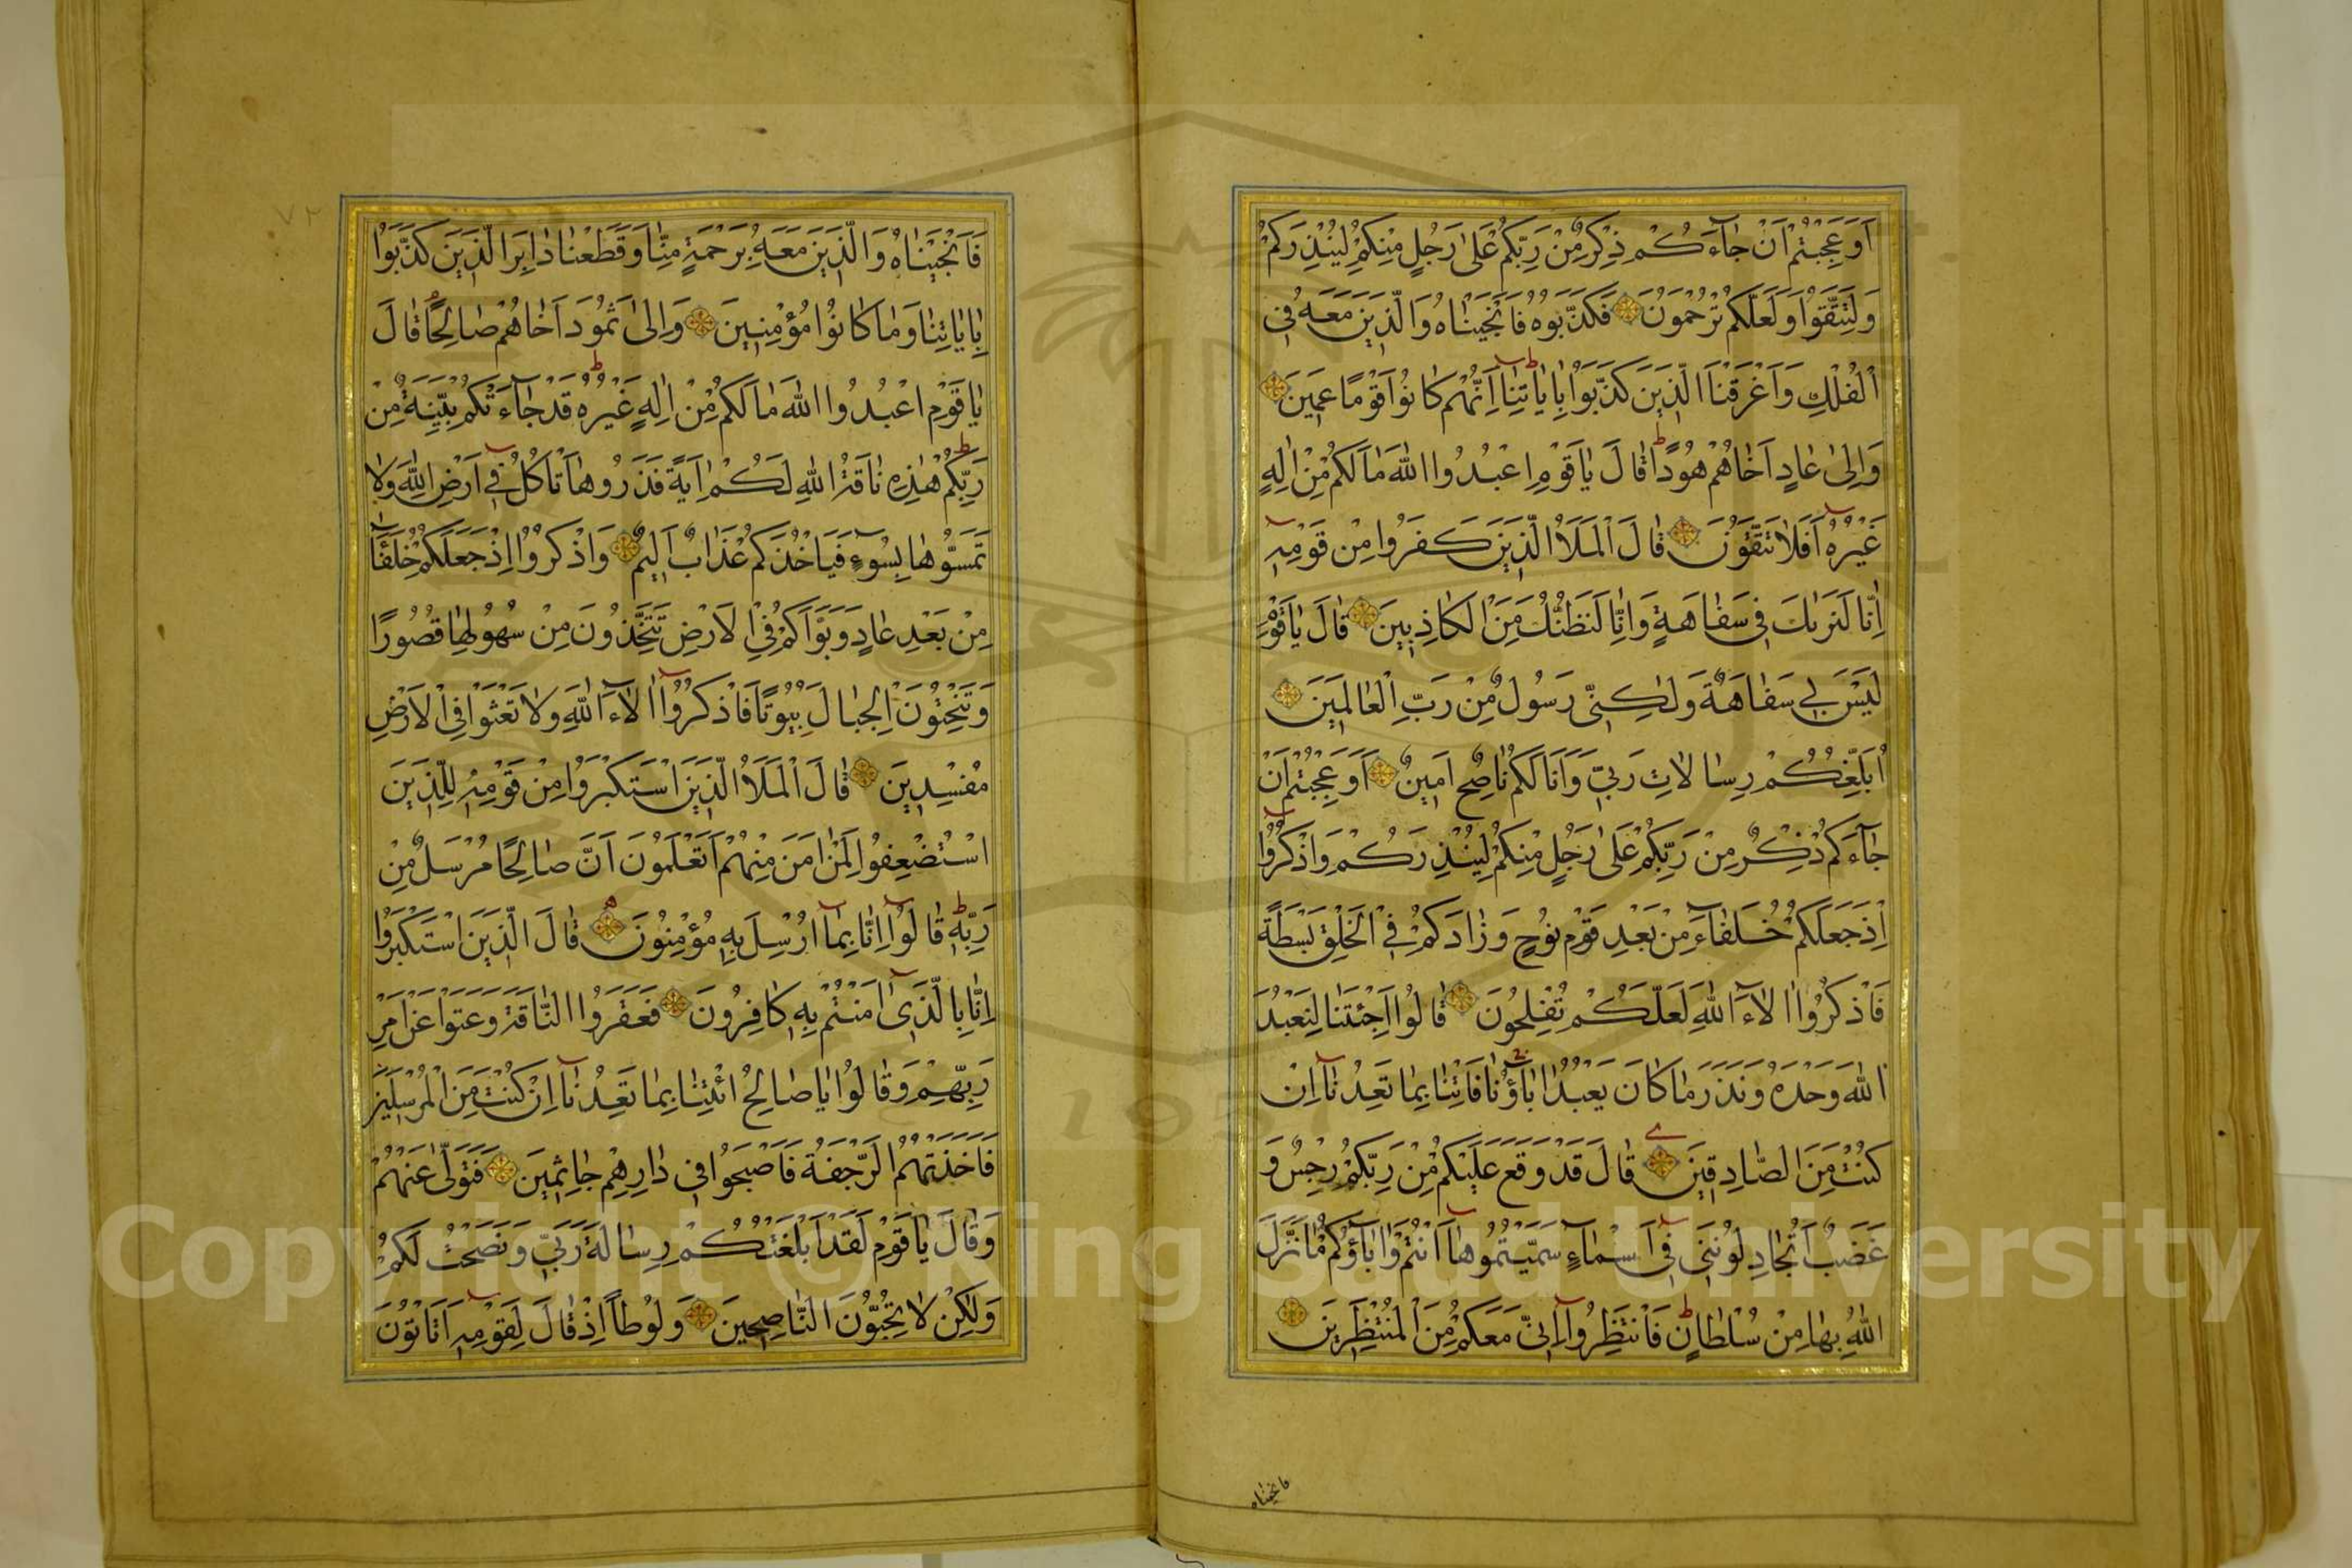 اَوَعَجِبْتُمْ اَنْ جٰآءَكُمْ ذِكْرٌ مِنْ رَبِّكُمْ عَلٰى رَجُلٍ مِنْكُمْ لِيُنْذِرَكُمْ
وَلِتَتَّقُوْا وَلَعَلَّكُمْ تُرْحَمُونَ فَكَذَّبُوهُ فَاَنْجَيْنَاهُ وَالَّذِينَ مَعَهُ فِى
الْفُلْكِ وَاَغْرَقْنَا الَّذِينَ كَذَّبُوا بِاٰيَاتِنَا اِنَّهُمْ كَانُوا قَوْمًا عَمِينَ
وَاِلٰى عَادٍ اَخَاهُمْ هُودًا قَالَ يَاقَوْمِ اعْبُدُوا اللّٰهَ مَالَكُمْ مِنْ اِلٰهٍ
غَيْرُهُ اَفَلَا تَتَّقُونَ قَالَ الْمَلَاُ الَّذِينَ كَفَرُوا مِنْ قَوْمِهِ
اِنَّا لَنَرٰيكَ فِى سَفَاهَةٍ وَاِنَّا لَنَظُنُّكَ مِنَ الْكَاذِبِينَ قَالَ يَاقَوْمِ
لَيْسَ بِى سَفَاهَةٌ وَلٰكِنِّى رَسُولٌ مِنْ رَبِّ الْعَالَمِينَ
اُبَلِّغُكُمْ رِسَالَاتِ رَبِّى وَاَنَا لَكُمْ نَاصِحٌ اَمِينٌ اَوَعَجِبْتُمْ اَنْ
جٰآءَكُمْ ذِكْرٌ مِنْ رَبِّكُمْ عَلٰى رَجُلٍ مِنْكُمْ لِيُنْذِرَكُمْ وَاذْكُرُوا
اِذْ جَعَلَكُمْ خُلَفَآءَ مِنْ بَعْدِ قَوْمِ نُوحٍ وَزَادَكُمْ فِى الْخَلْقِ بَسْطَةً
فَاذْكُرُوا اٰلَآءَ اللّٰهِ لَعَلَّكُمْ تُفْلِحُونَ قَالُوا اَجِئْتَنَا لِنَعْبُدَ
اللّٰهَ وَحْدَهُ وَنَذَرَ مَاكَانَ يَعْبُدُ اٰبَآؤُنَا فَاْتِنَا بِمَا تَعِدُنَآ اِنْ
كُنْتَ مِنَ الصَّادِقِينَ قَالَ قَدْ وَقَعَ عَلَيْكُمْ مِنْ رَبِّكُمْ رِجْسٌ وَ
غَضَبٌ اَتُجَادِلُونَنِى فِى اَسْمَآءٍ سَمَّيْتُمُوهَا اَنْتُمْ وَاٰبَآؤُكُمْ مَانَزَّلَ
اللّٰهُ بِهَا مِنْ سُلْطَانٍ فَانْتَظِرُوا اِنِّى مَعَكُمْ مِنَ الْمُنْتَظِرِينَ
فانجيناه
فَاَنْجَيْنَاهُ وَالَّذِينَ مَعَهُ بِرَحْمَةٍ مِنَّا وَقَطَعْنَا دَابِرَ الَّذِينَ كَذَّبُوا
بِاٰيَاتِنَا وَمَاكَانُوا مُؤْمِنِينَ وَاِلٰى ثَمُودَ اَخَاهُمْ صَالِحًا قَالَ
يَاقَوْمِ اعْبُدُوا اللّٰهَ مَالَكُمْ مِنْ اِلٰهٍ غَيْرُهُ قَدْ جَآءَتْكُمْ بَيِّنَةٌ مِنْ
رَبِّكُمْ هٰذِهِ نَاقَةُ اللّٰهِ لَكُمْ اٰيَةً فَذَرُوهَا تَاْكُلْ فِى اَرْضِ اللّٰهِ وَلَا
تَمَسُّوهَا بِسُوٓءٍ فَيَاْخُذَكُمْ عَذَابٌ اَلِيمٌ وَاذْكُرُوا اِذْ جَعَلَكُمْ خُلَفَآءَ
مِنْ بَعْدِ عَادٍ وَبَوَّاَكُمْ فِى الْاَرْضِ تَتَّخِذُونَ مِنْ سُهُولِهَا قُصُورًا
وَتَنْحِتُونَ الْجِبَالَ بُيُوتًا فَاذْكُرُوا اٰلَآءَ اللّٰهِ وَلَا تَعْثَوْا فِى الْاَرْضِ
مُفْسِدِينَ قَالَ الْمَلَاُ الَّذِينَ اسْتَكْبَرُوا مِنْ قَوْمِهِ لِلَّذِينَ
اسْتُضْعِفُوا لِمَنْ اٰمَنَ مِنْهُمْ اَتَعْلَمُونَ اَنَّ صَالِحًا مُرْسَلٌ مِنْ
رَبِّهِ قَالُوا اِنَّا بِمَآ اُرْسِلَ بِهِ مُؤْمِنُونَ قَالَ الَّذِينَ اسْتَكْبَرُوا
اِنَّا بِالَّذِى اٰمَنْتُمْ بِهِ كَافِرُونَ فَعَقَرُوا النَّاقَةَ وَعَتَوْا عَنْ اَمْرِ
رَبِّهِمْ وَقَالُوا يَاصَالِحُ ائْتِنَا بِمَا تَعِدُنَآ اِنْ كُنْتَ مِنَ الْمُرْسَلِينَ
فَاَخَذَتْهُمُ الرَّجْفَةُ فَاَصْبَحُوا فِى دَارِهِمْ جَاثِمِينَ فَتَوَلّٰى عَنْهُمْ
وَقَالَ يَاقَوْمِ لَقَدْ اَبْلَغْتُكُمْ رِسَالَةَ رَبِّى وَنَصَحْتُ لَكُمْ
وَلٰكِنْ لَا تُحِبُّونَ النَّاصِحِينَ وَلُوطًا اِذْ قَالَ لِقَوْمِهِ اَتَاْتُونَ
٧٢
1957
Copyright © King Saud University